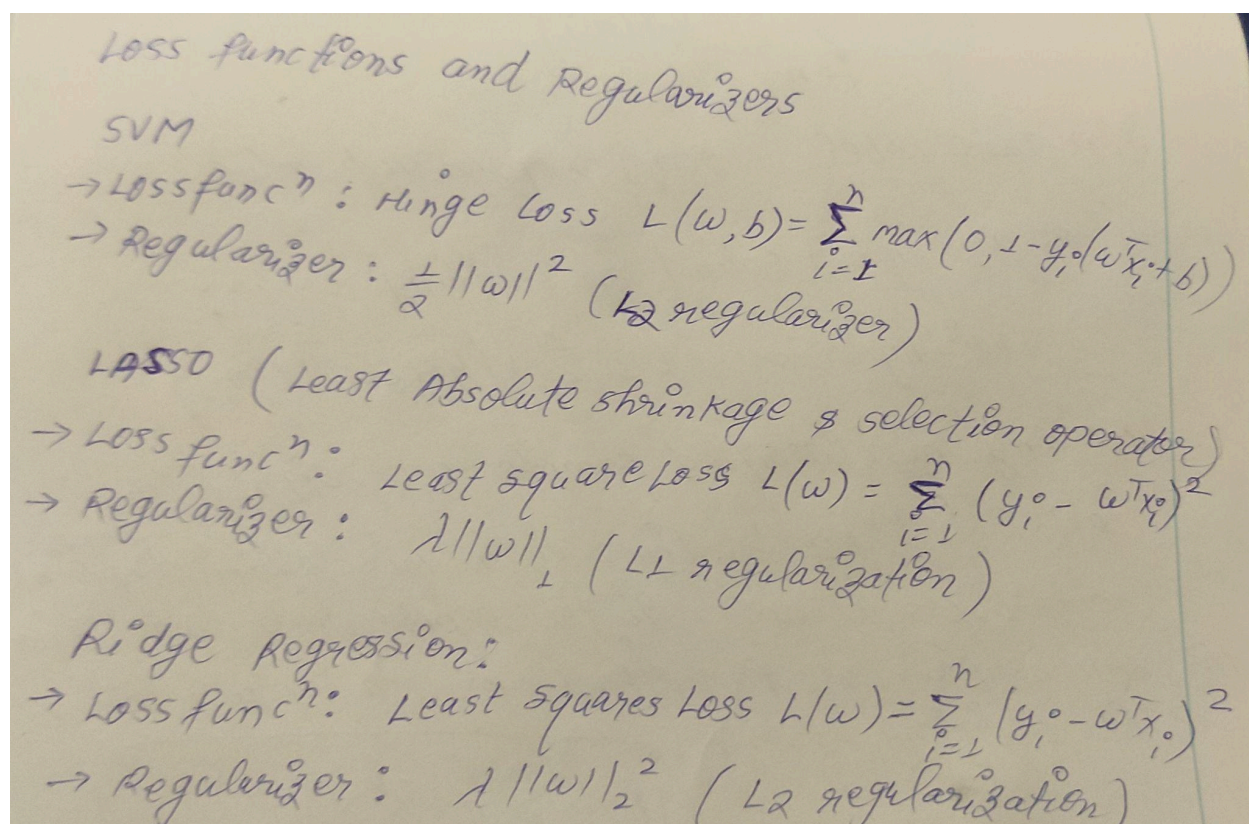 Loss functions and Regularizers
SVM
→ Loss funcⁿ : Hinge Loss L(w,b) = Σⁿᵢ₌₁ max(0, 1-yᵢ(wᵀxᵢ+b))
→ Regularizer : 1/2 ||w||² (L2 regularizer)
LASSO (Least Absolute shrinkage & selection operator)
→ Loss funcⁿ : Least square Loss L(w) = Σⁿᵢ₌₁ (yᵢ - wᵀxᵢ)²
→ Regularizer : λ||w||₁ (L1 regularization)
Ridge Regression:
→ Loss funcⁿ : Least Squares Loss L(w) = Σⁿᵢ₌₁ (yᵢ - wᵀxᵢ)²
→ Regularizer : λ ||w||₂² (L2 regularization)